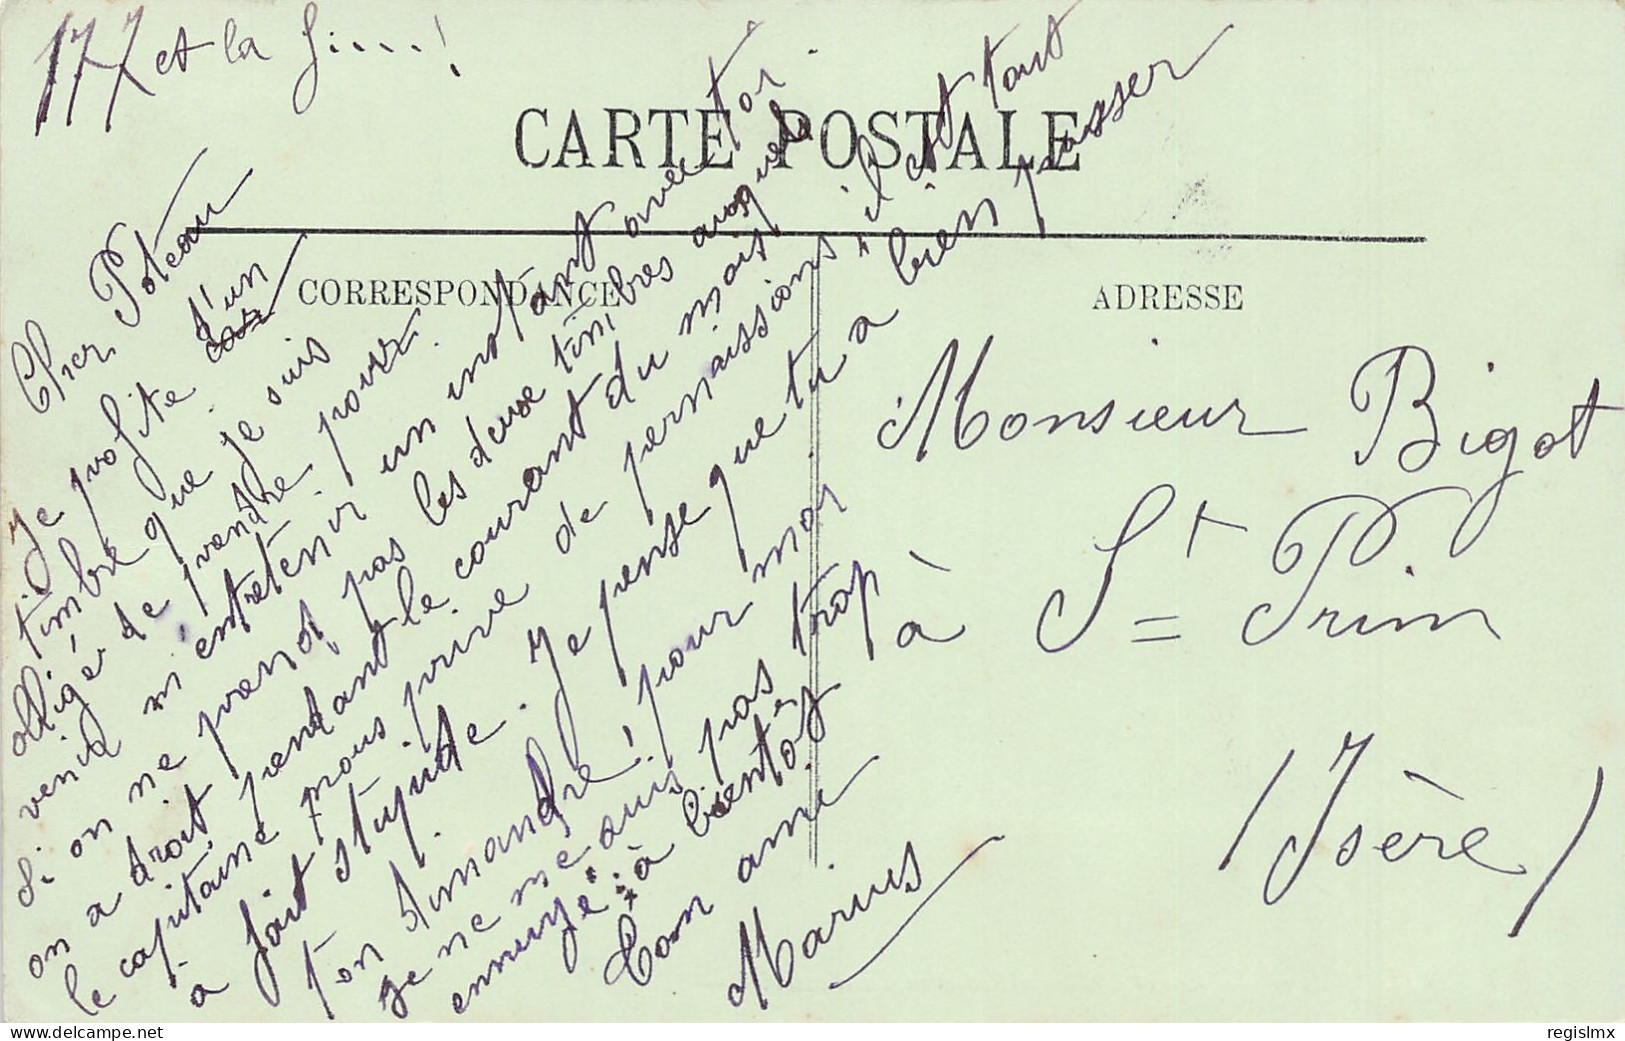 177 et la fi....!
CARTE POSTALE
CORRESPONDANCE
ADRESSE
Cher Poteau
Je profite d'un
timbre que je suis
obligé de prendre pour
venir m'entretenir un instant avec toi.
Si on ne prend pas les deux timbres auxquels
on a droit pendant le courant du mois
le capitaine nous prive de permissions "il est tout
à fait stupide. Je pense que tu a bien passer
ton dimanche! pour moi
je ne me suis pas trop
ennuyé à bientôt
Ton ami
Marius
Monsieur Bigot
à St Prim
(Isère)
regislmx
www.delcampe.net